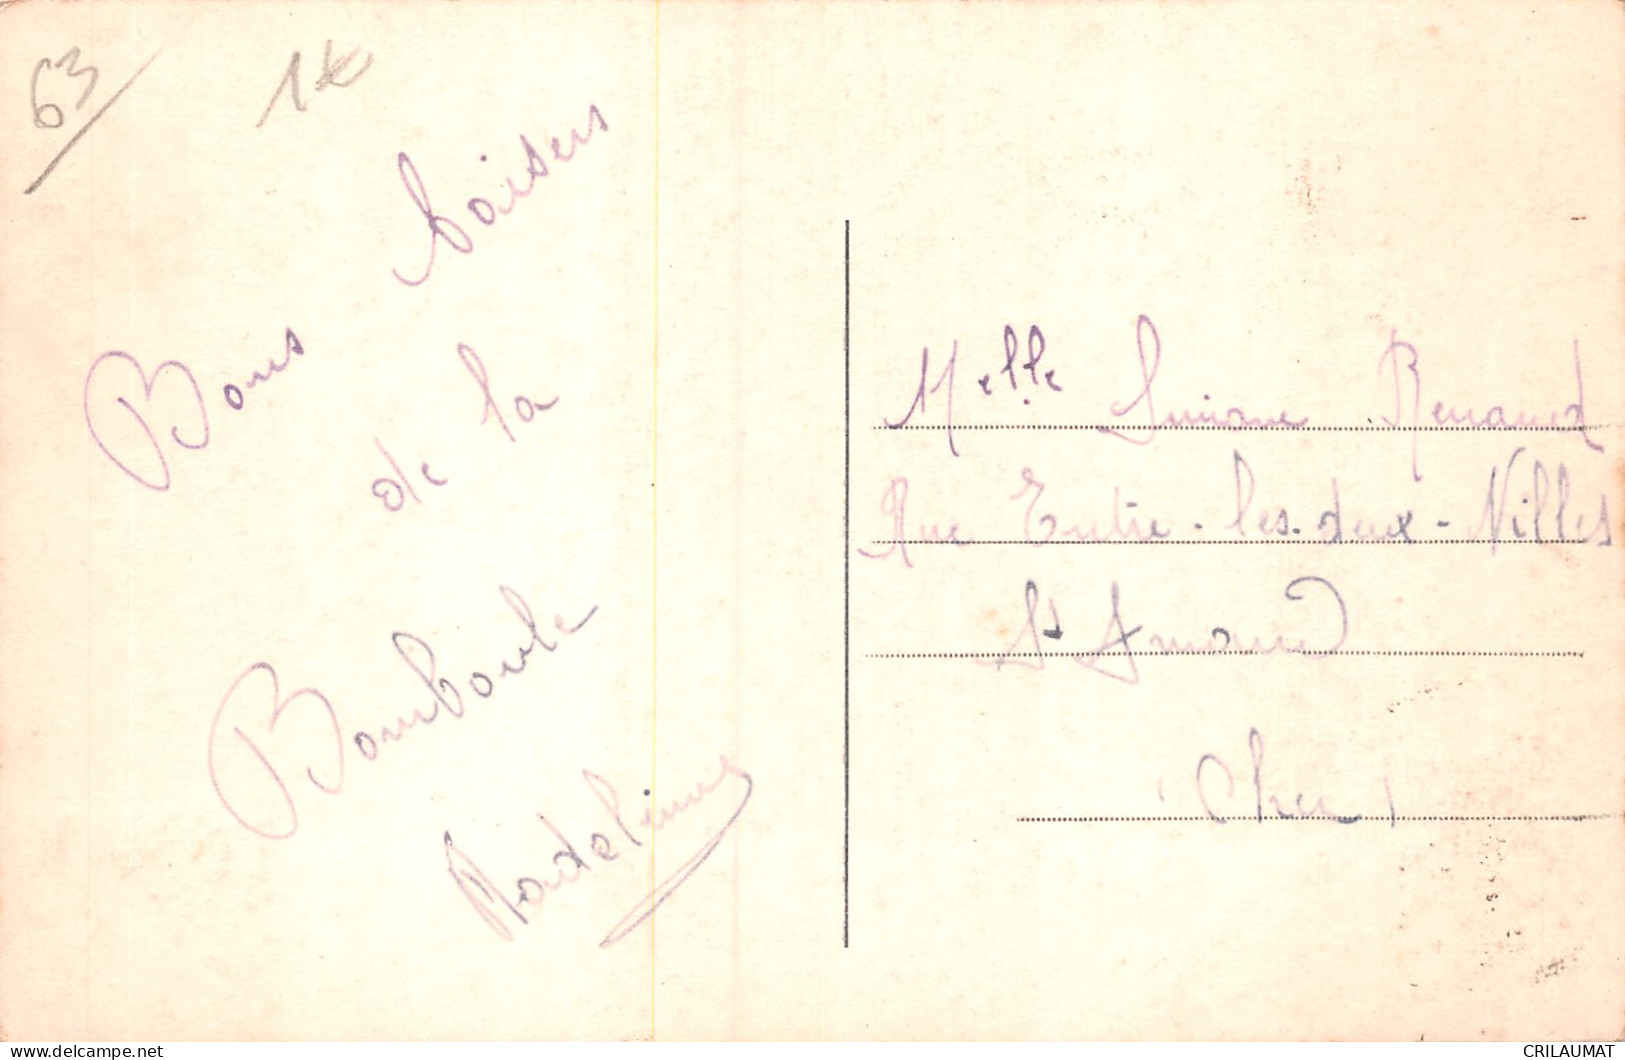 63
1€
Bons baisers
de la
Bourboule
Madeleine
Melle Simone Renaud
Rue Entre-les-deux-Villes
St Amand
(Cher)
www.delcampe.net
CRILAUMAT